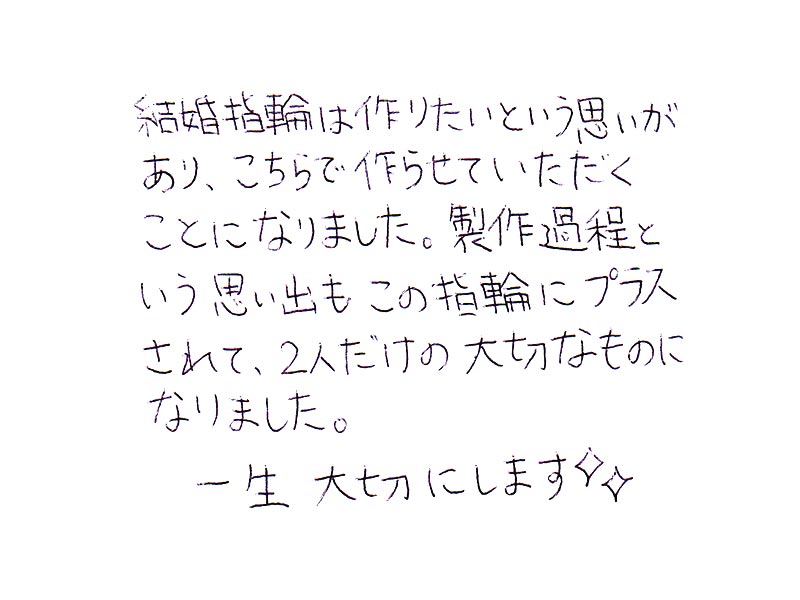 結婚指輪は作りたいという思いが
あり、こちらで作らせていただく
ことになりました。製作過程と
いう思い出も この指輪にプラス
されて、2人だけの大切なものに
なりました。
一生 大切にします✧✧